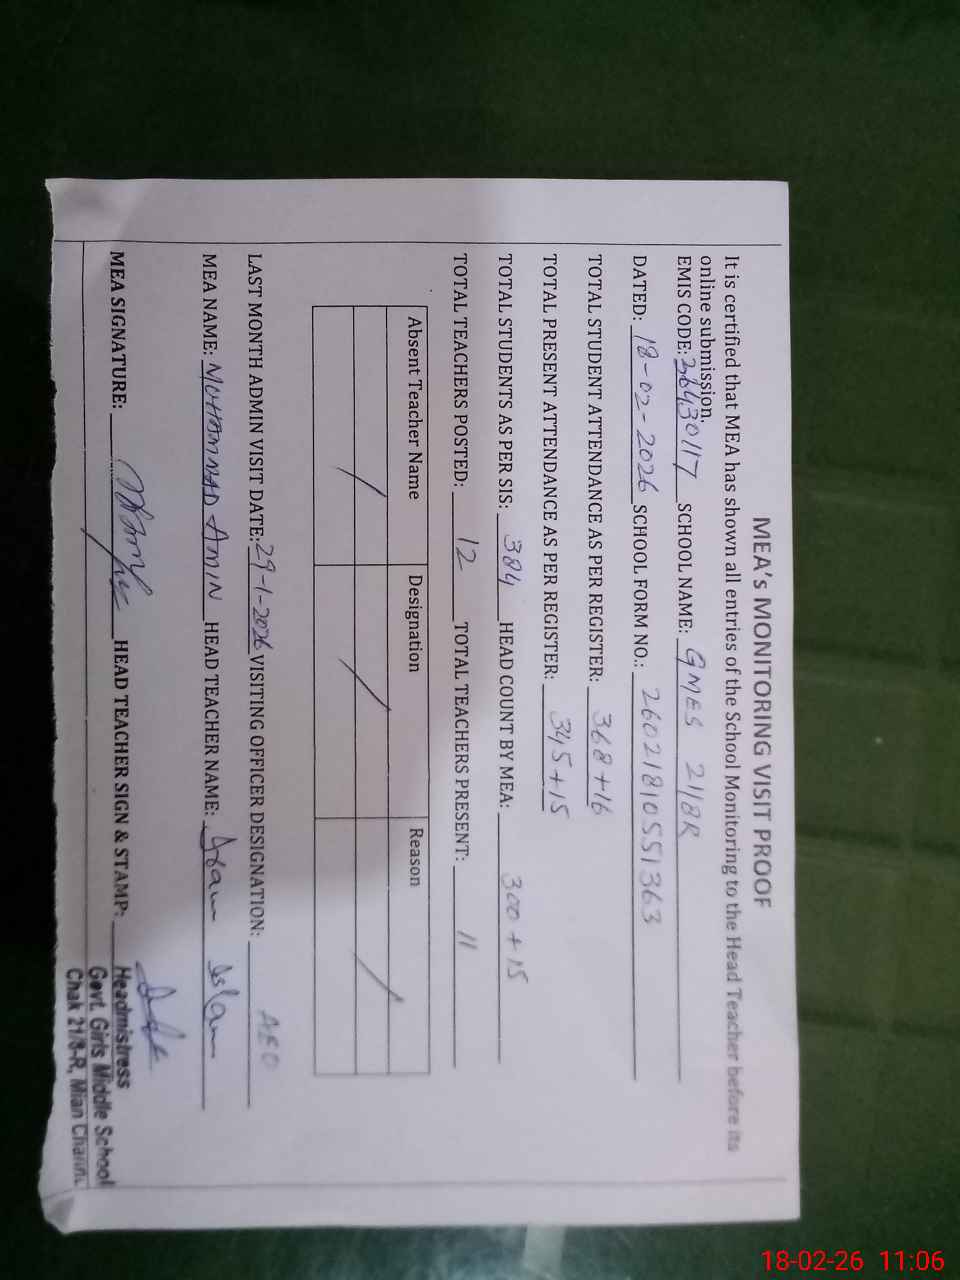 MEA's MONITORING VISIT PROOF
It is certified that MEA has shown all entries of the School Monitoring to the Head Teacher before its
online submission.
EMIS CODE: 36430117 SCHOOL NAME: GMES 21/8R
DATED: 18-02-2026 SCHOOL FORM NO.: 26021810551363
TOTAL STUDENT ATTENDANCE AS PER REGISTER: 368+16
TOTAL PRESENT ATTENDANCE AS PER REGISTER: 345+15
TOTAL STUDENTS AS PER SIS: 384 HEAD COUNT BY MEA: 300+15
TOTAL TEACHERS POSTED: 12 TOTAL TEACHERS PRESENT: 11
Absent Teacher Name Designation Reason
/ / /
LAST MONTH ADMIN VISIT DATE: 29-1-2026 VISITING OFFICER DESIGNATION: AEO
MEA NAME: MOHAMMAD AMIN HEAD TEACHER NAME: Islam
MEA SIGNATURE: HEAD TEACHER SIGN & STAMP:
Headmistress
Govt. Girls Middle School
Chak 21/8-R, Mian Channu
18-02-26 11:06